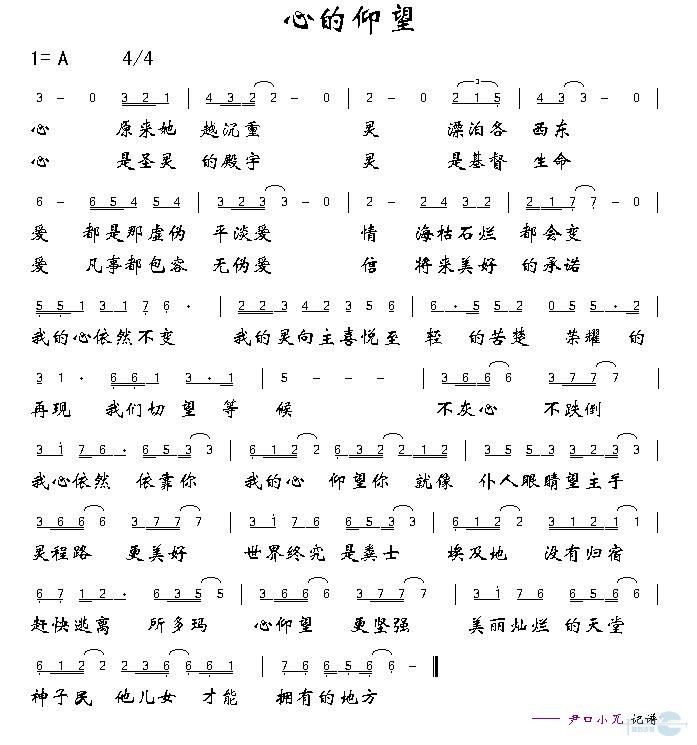 心的仰望
1= A 4/4
3 - 0 3 2 1 | 4 3 2 2 - 0 | 2 - 0 2 1 5 | 4 3 3 - 0 |
心 原来她 越沉重 灵 漂泊各 西东
心 是圣灵 的殿宇 灵 是基督 生命
6 - 6 5 4 5 4 | 3 2 3 3 - 0 | 2 - 2 4 3 2 | 2 1 7 7 - 0 |
爱 都是那虚伪 平淡爱 情 海枯石烂 都会变
爱 凡事都包容 无伪爱 信 将来美好 的承诺
5 5 1 3 1 7 6 · | 2 2 3 4 2 3 5 6 | 6 · 5 5 2 0 5 5 · 2 |
我的心依然不变 我的灵向主喜悦至 轻 的苦楚 荣耀 的
3 1 · 6 6 1 3 · 1 | 5 - - - | 3 6 6 6 3 7 7 7 |
再现 我们切 望 等 候 不灰心 不跌倒
3 1 7 6 · 6 5 3 3 | 6 1 2 2 6 3 2 2 1 2 | 3 5 5 3 5 3 2 3 |
我心依然 依靠你 我的心 仰望你 就像 仆人眼睛望主手
3 6 6 6 3 7 7 7 | 3 1 7 6 6 5 3 3 | 6 1 2 2 2 3 1 1 |
灵程路 更美好 世界终究 是粪土 埃及地 没有归宿
6 7 1 2 · 6 3 5 5 | 3 6 6 6 3 7 7 7 | 3 1 7 6 6 5 6 6 |
赶快逃离 所多玛 心仰望 更坚强 美丽灿烂 的天堂
6 1 2 2 2 1 6 6 1 | 7 6 6 5 6 6 - ‖
神子民 他儿女 才能 拥有的地方
—— 尹口小兀 记谱